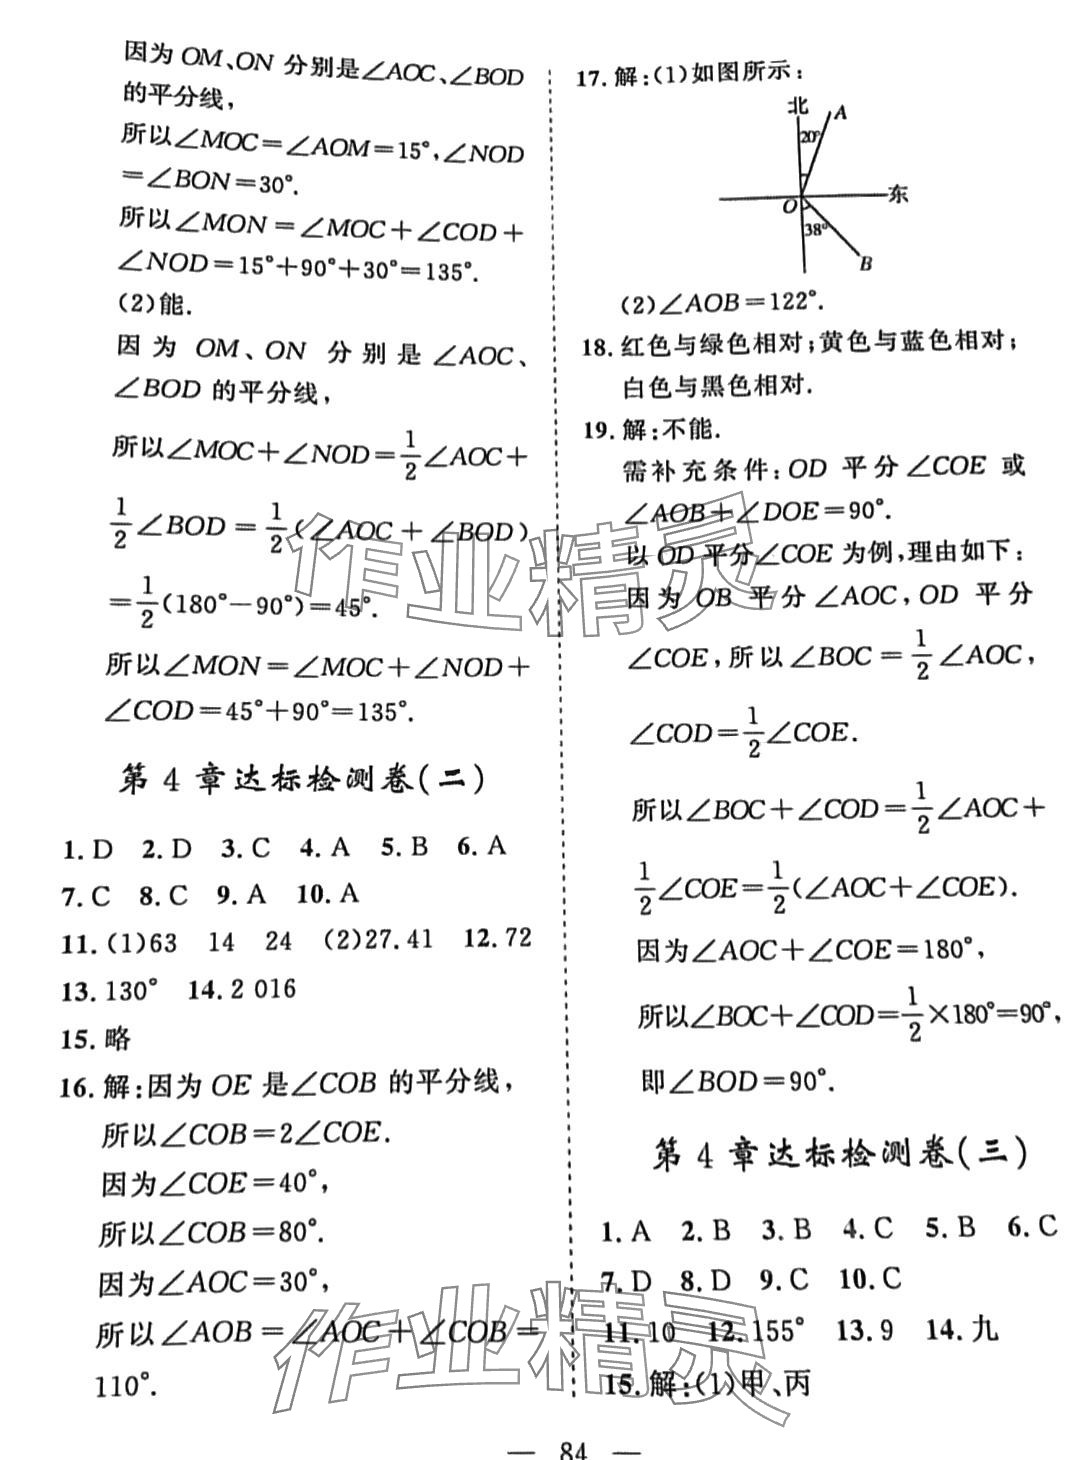 因为 OM、ON 分别是∠AOC、∠BOD
的平分线，
所以∠MOC＝∠AOM＝15°，∠NOD
＝∠BON＝30°.
所以∠MON＝∠MOC＋∠COD＋
∠NOD＝15°＋90°＋30°＝135°.
(2)能.
因为 OM、ON 分别是∠AOC、
∠BOD 的平分线，
所以∠MOC＋∠NOD＝1/2∠AOC＋
1/2∠BOD＝1/2(∠AOC＋∠BOD)
＝1/2(180°－90°)＝45°.
所以∠MON＝∠MOC＋∠NOD＋
∠COD＝45°＋90°＝135°.
第 4 章达标检测卷(二)
1. D 2. D 3. C 4. A 5. B 6. A
7. C 8. C 9. A 10. A
11. (1)63 14 24 (2)27.41 12. 72
13. 130° 14. 2 016
15. 略
16. 解：因为 OE 是∠COB 的平分线，
所以∠COB＝2∠COE.
因为∠COE＝40°，
所以∠COB＝80°.
因为∠AOC＝30°，
所以∠AOB＝∠AOC＋∠COB＝
110°.
17. 解：(1)如图所示：
北
A
20°
O
东
38°
B
(2)∠AOB＝122°.
18. 红色与绿色相对；黄色与蓝色相对；
白色与黑色相对.
19. 解：不能.
需补充条件：OD 平分∠COE 或
∠AOB＋∠DOE＝90°.
以 OD 平分∠COE 为例，理由如下：
因为 OB 平分∠AOC，OD 平分
∠COE，所以∠BOC＝1/2∠AOC，
∠COD＝1/2∠COE.
所以∠BOC＋∠COD＝1/2∠AOC＋
1/2∠COE＝1/2(∠AOC＋∠COE).
因为∠AOC＋∠COE＝180°，
所以∠BOC＋∠COD＝1/2×180°＝90°，
即∠BOD＝90°.
第 4 章达标检测卷(三)
1. A 2. B 3. B 4. C 5. B 6. C
7. D 8. D 9. C 10. C
11. 10 12. 155° 13. 9 14. 九
15. 解：(1)甲、丙
— 84 —
作业精灵
作业精灵